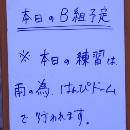 本日のB組予定
※ 本日の練習は
雨の為、はんぴドーム
で行われます。